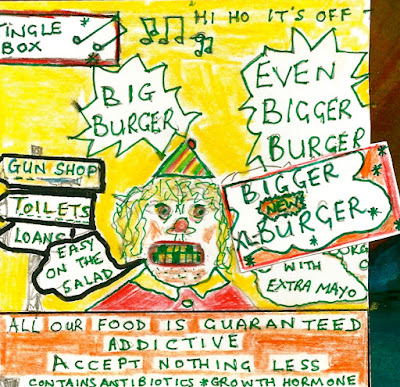 TINGLE
BOX
HI HO IT'S OFF T
BIG
BURGER
EVEN
BIGGER
BURGER
BIGGER
NEW!
XL BURGER
GUN SHOP
TOILETS
LOANS
EASY
ON THE
SALAD
WITH
EXTRA MAYO
ALL OUR FOOD IS GUARANTEED
ADDICTIVE
ACCEPT NOTHING LESS
CONTAINS ANTIBIOTICS *GROWTH HORMONE